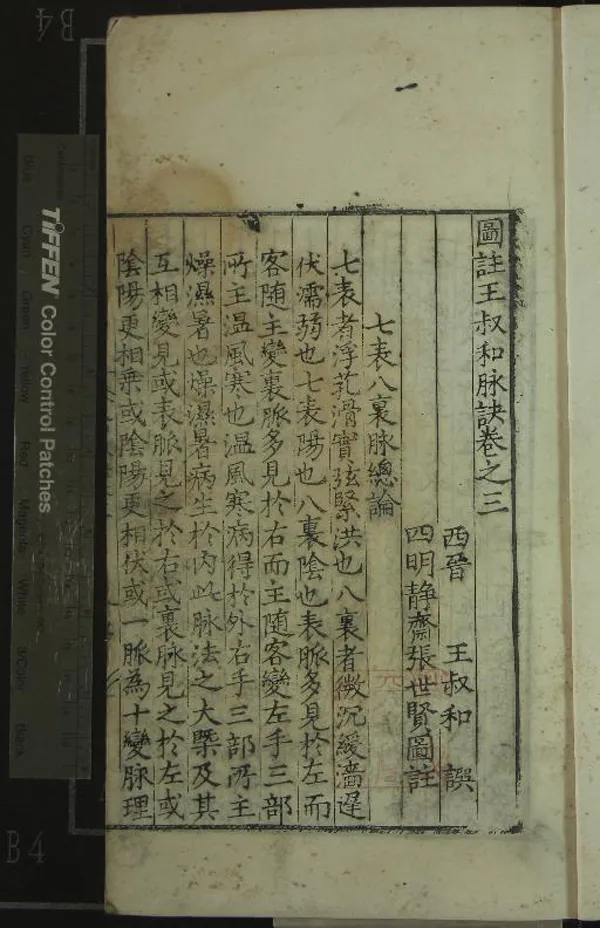 圖註王叔和脉訣卷之三
西晉 王叔和 譔
四明靜齋張世賢圖註
七表八裏脉總論
七表者浮芤滑實弦緊洪也八裏者微沉緩濇遲
伏濡弱也七表陽也八裏陰也表脈多見於左而
客随主變裏脈多見於右而主随客變左手三部
所主温風寒也温風寒病得於外右手三部所主
燥濕暑也燥濕暑病生於内此脉法之大槩及其
互相變見或表脈見之於右或裏脉見之於左或
陰陽更相乗或陰陽更相伏或一脈為十變脉理
B4
B4
TIFFEN Color Control Patches
Blue
Cyan
Green
Yellow
Red
Magenta
White
3/Color
Black